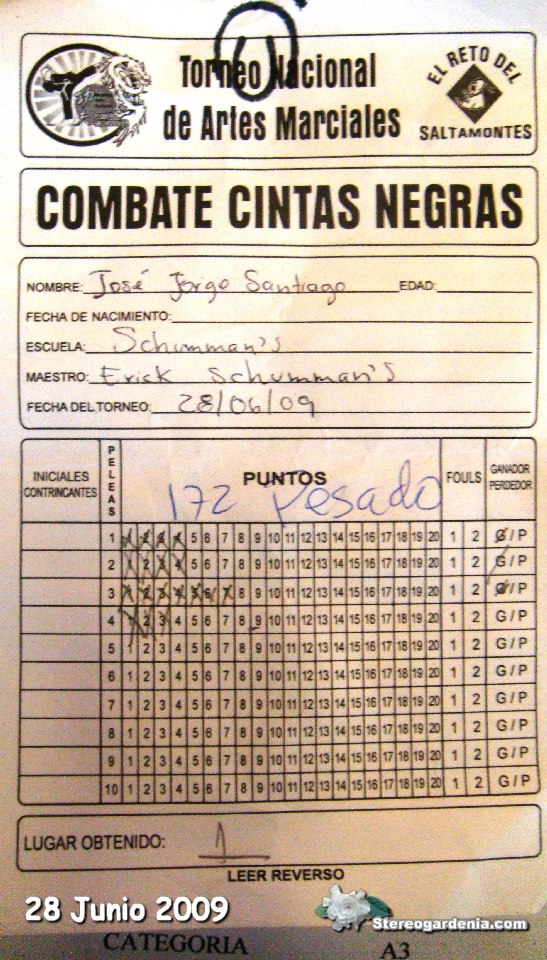 Torneo Nacional
de Artes Marciales
EL RETO DEL
SALTAMONTES
COMBATE CINTAS NEGRAS
NOMBRE: José Jorge Santiago EDAD:
FECHA DE NACIMIENTO:
ESCUELA: Schumman's
MAESTRO: Erick Schumman's
FECHA DEL TORNEO: 28/06/09
INICIALES CONTRINCANTES PELEAS PUNTOS FOULS GANADOR PERDEDOR
172 Pesado
1 1 2 3 4 5 6 7 8 9 10 11 12 13 14 15 16 17 18 19 20 1 2 G / P
2 1 2 3 4 5 6 7 8 9 10 11 12 13 14 15 16 17 18 19 20 1 2 G / P
3 1 2 3 4 5 6 7 8 9 10 11 12 13 14 15 16 17 18 19 20 1 2 G / P
4 1 2 3 4 5 6 7 8 9 10 11 12 13 14 15 16 17 18 19 20 1 2 G / P
5 1 2 3 4 5 6 7 8 9 10 11 12 13 14 15 16 17 18 19 20 1 2 G / P
6 1 2 3 4 5 6 7 8 9 10 11 12 13 14 15 16 17 18 19 20 1 2 G / P
7 1 2 3 4 5 6 7 8 9 10 11 12 13 14 15 16 17 18 19 20 1 2 G / P
8 1 2 3 4 5 6 7 8 9 10 11 12 13 14 15 16 17 18 19 20 1 2 G / P
9 1 2 3 4 5 6 7 8 9 10 11 12 13 14 15 16 17 18 19 20 1 2 G / P
10 1 2 3 4 5 6 7 8 9 10 11 12 13 14 15 16 17 18 19 20 1 2 G / P
LUGAR OBTENIDO: 1
LEER REVERSO
28 Junio 2009
Stereogardenia.com
CATEGORIA A3